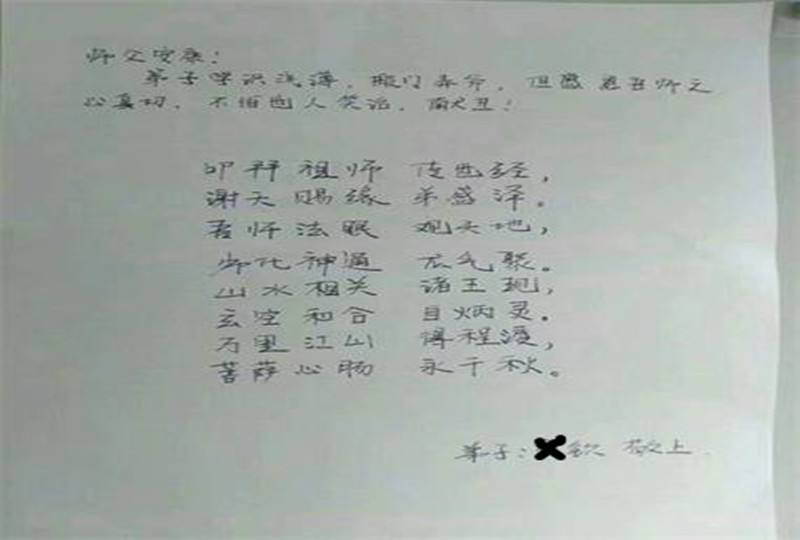 师父安康！
弟子学识浅薄，搬门弄斧，但感恩吾师之
心真切，不怕他人笑话，献丑！
叩拜祖师 传世经，
谢天赐缘 弟盛泽。
吾师法眼 观天地，
师化神通 龙气聚。
山水相关 诸王现，
玄空和合 自炳灵。
万里江山 得程漫，
菩萨心肠 永千秋。
弟子：钦 敬上